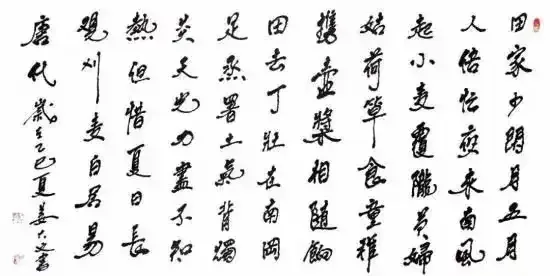 田家少閒月五月
人倍忙夜来南風
起小麦覆隴黄婦
姑荷箪食童稚
攜壺漿相随餉
田去丁壯在南岡
足蒸暑土氣背燭
炎天光力盡不知
熱但惜夏日長
觀刈麦白居易
唐代歲在乙巳夏姜書